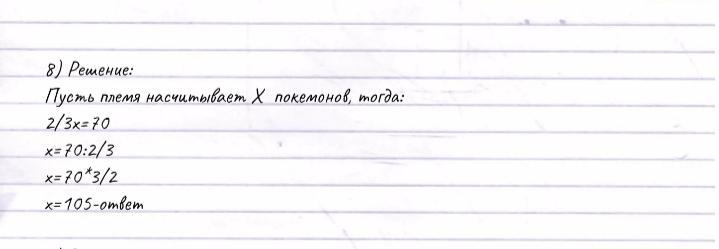 8) Решение:
Пусть племя насчитывает X покемонов, тогда:
2/3x=70
x=70:2/3
x=70*3/2
x=105-ответ